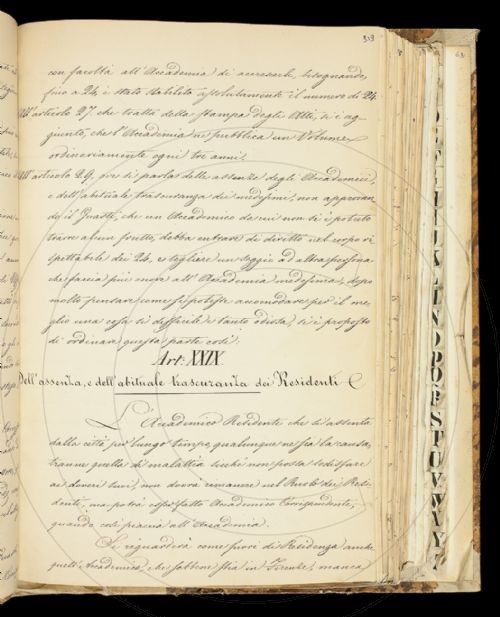 329
con facoltà all'Accademia di accrescerli, bisognando,
fino a 24 è stato stabilito assolutamente il numero di 24.
All'articolo 27. che tratta della stampa degli Atti, si è ag
giunto, che l'Accademia ne pubblica un Volume
ordinariamente ogni tre anni.
All'articolo 29, ove si parla delle assenze degli Accademici,
e dell'abituale trascuranza dei medesimi, non approvan
dosi il Quarto, che un Accademico da cui non si è potuto
trarre alcun frutto, debba entrare di diritto nel corpo ri
spettabile dei 24, e togliere un seggio ad altra persona
che faccia più onore all'Accademia medesima, dopo
molto pensare come si potesse accomodare per il me
glio una cosa sì difficile e tanto odiosa, si è proposto
di ordinare questa parte così:
Art: XXIX.
Dell'assenza, e dell'abituale trascuranza dei Residenti
L'Accademico Residente che si assenta
dalla città per lungo tempo, qualunque ne sia la causa,
tranne quella di malattia sicchè non possa sodisfare
ai doveri suoi, non dovrà rimanere nel Ruolo dei Resi
denti, ma potrà esser fatto Accademico Corrispondente,
quando così piaccia all'Accademia.
Si riguarderà come fuori di Residenza anche
quell'Accademico, che sebbene stia in Firenze, manca
N O P Q R S T U V W X Y Z